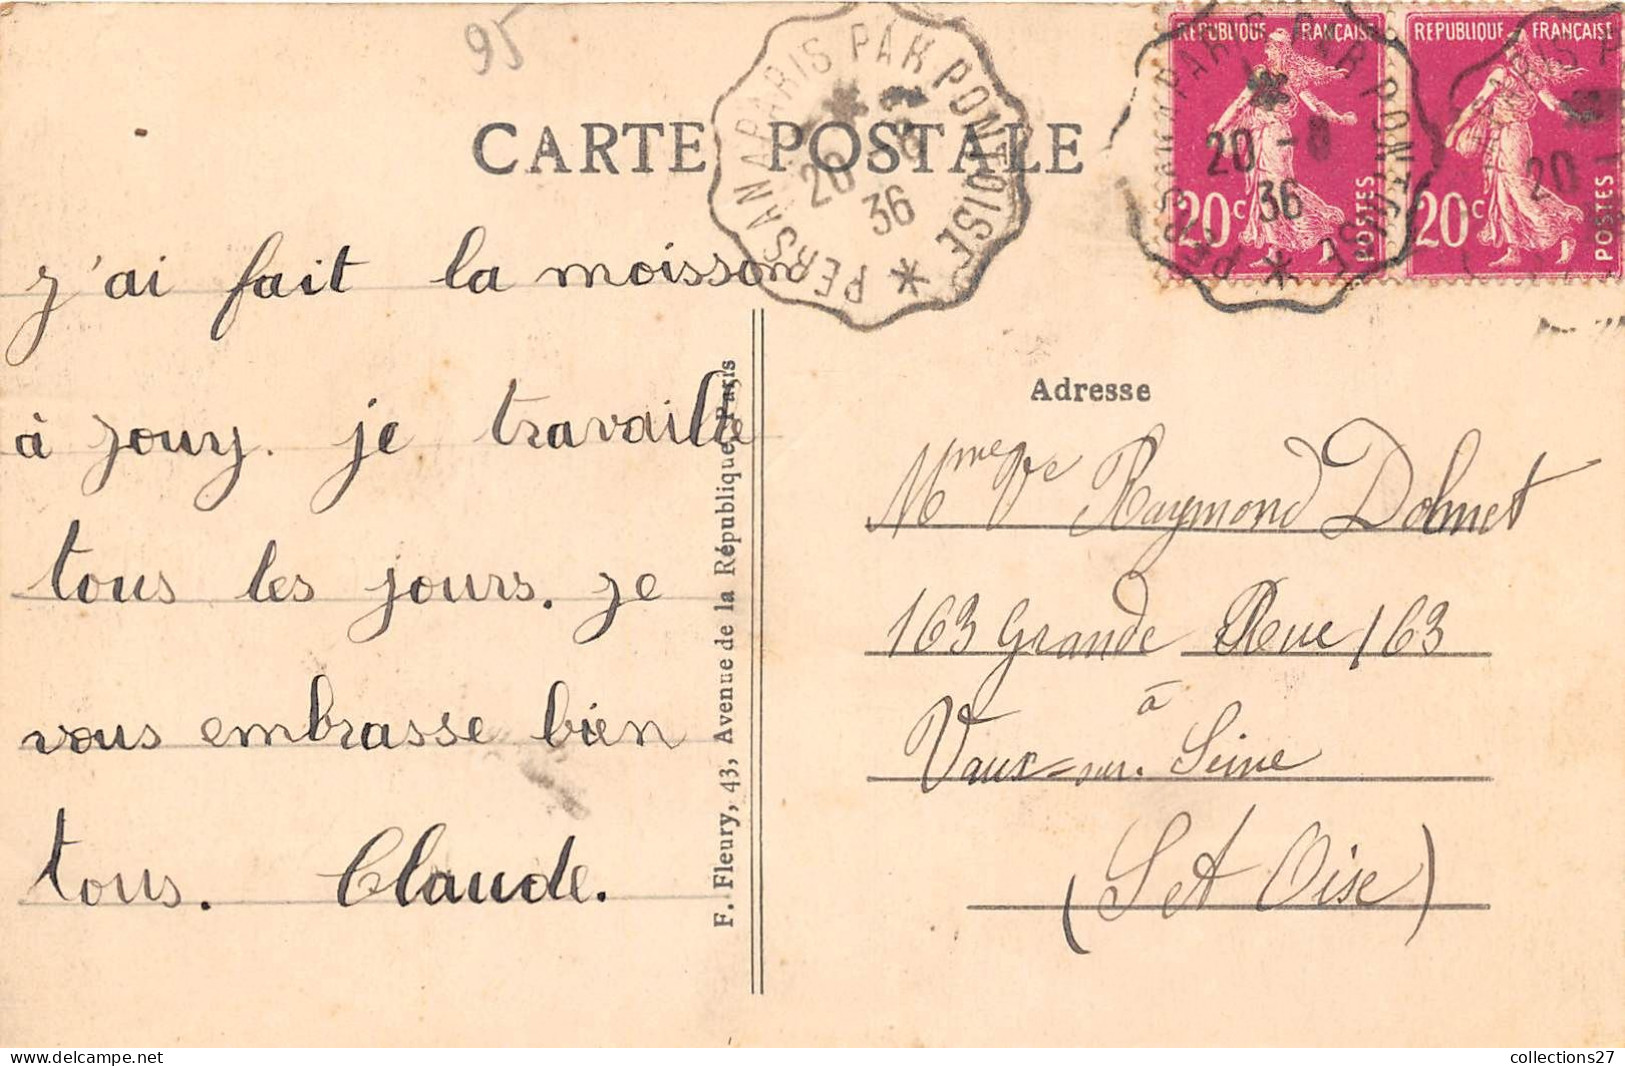 95
CARTE POSTALE
PERSAN A PARIS PAR PONTOISE
20 - 8
36
RÉPUBLIQUE FRANÇAISE
20c
POSTES
RÉPUBLIQUE FRANÇAISE
20c
POSTES
PERSAN A PARIS PAR PONTOISE
20 - 8
36
20 -
j'ai fait la moisson
à Jouy. je travaille
tous les jours. je
vous embrasse bien
tous. Claude.
F. Fleury, 43, Avenue de la République, Paris
Adresse
Mme Vve Raymond Dolmet
163 Grande Rue 163
à
Vaux-sur-Seine
(S et Oise)
collections27